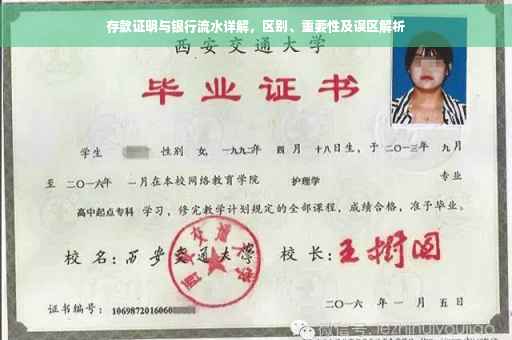 存款证明与银行流水详解，区别、重要性及误区解析
西安交通大学
毕业证书
学生 性别 女，一九九二年 四月 十八日生，于二〇一三年 九月
至 二〇一六年 一月在本校网络教育学院 护理学 专业
高中起点专科 学习，修完教学计划规定的全部课程，成绩合格，准予毕业。
校名：西安交通大学 校长：王树国
西安交通大学
证书编号：1069872016060
二〇一六年一月五日
微信号:jezhinuiyoujiao